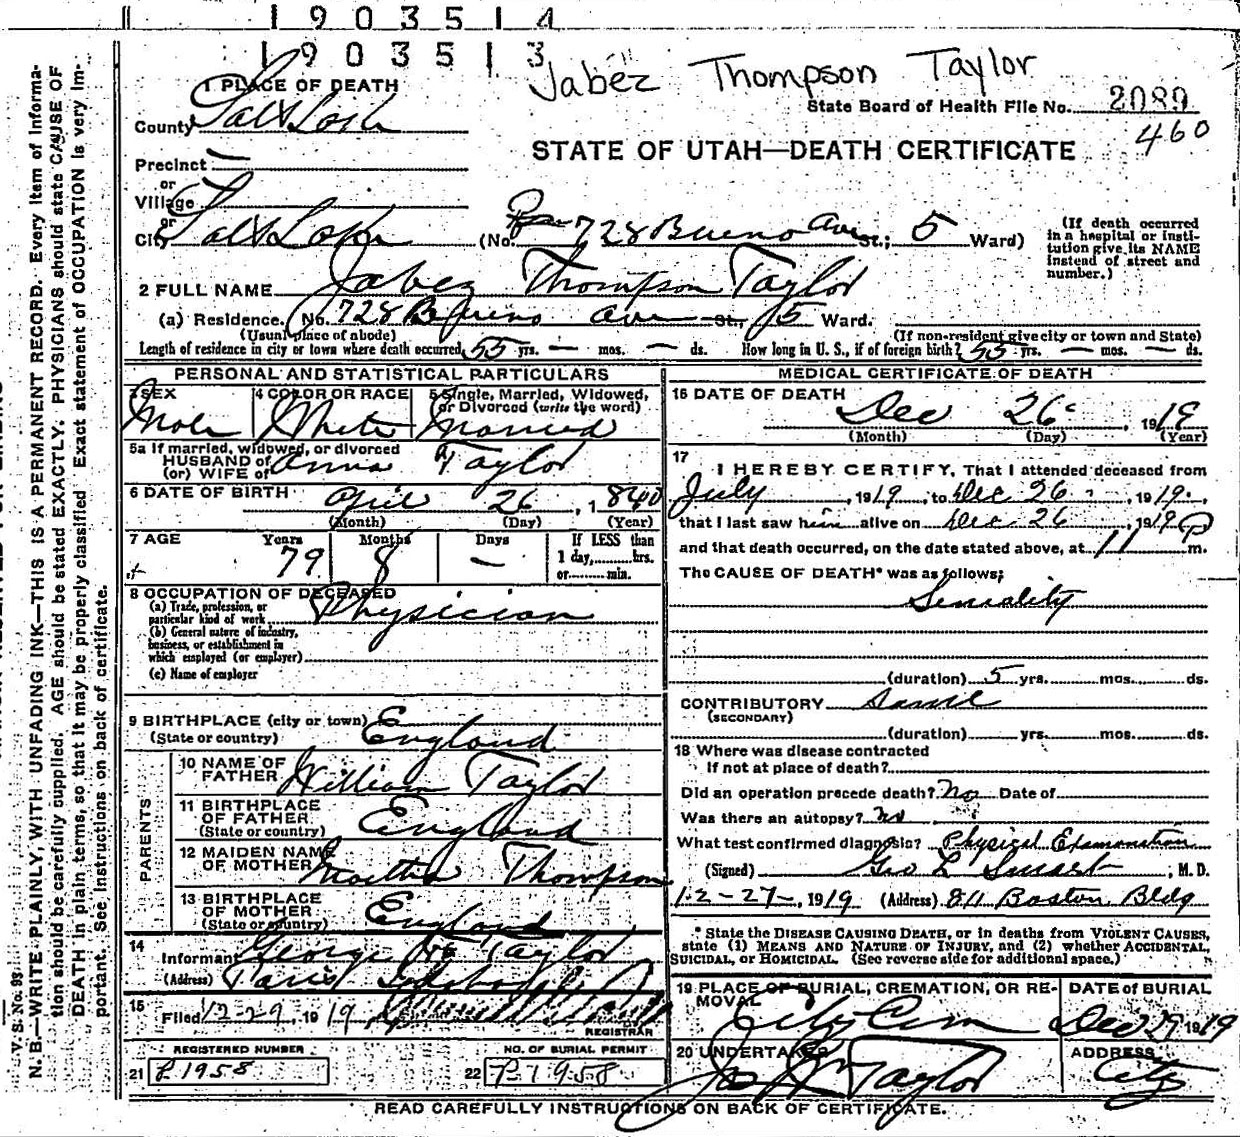 1903514
1903513
Jabez Thompson Taylor
1 PLACE OF DEATH
State Board of Health File No. 2089
County Salt Lake
460
STATE OF UTAH—DEATH CERTIFICATE
Precinct —
or
Village
or
City Salt Lake (No. 728 Bueno Ave St.; 5 Ward)
(If death occurred in a hospital or institution give its NAME instead of street and number.)
2 FULL NAME Jabez Thompson Taylor
(a) Residence. No. 728 Bueno Ave St., 5 Ward.
(Usual place of abode) (If non-resident give city or town and State)
Length of residence in city or town where death occurred 55 yrs. — mos. — ds. How long in U. S., if of foreign birth? 55 yrs. — mos. — ds.
PERSONAL AND STATISTICAL PARTICULARS
3 SEX 4 COLOR OR RACE 5 Single, Married, Widowed, or Divorced (write the word)
Male White Married
5a If married, widowed, or divorced
HUSBAND of
(or) WIFE of Anna Taylor
6 DATE OF BIRTH April 26, 1840
(Month) (Day) (Year)
7 AGE Years Months Days If LESS than
79 8 — 1 day,......hrs.
or......min.
8 OCCUPATION OF DECEASED
(a) Trade, profession, or
particular kind of work Physician
(b) General nature of industry,
business, or establishment in
which employed (or employer)
(c) Name of employer
9 BIRTHPLACE (city or town)
(State or country) England
PARENTS
10 NAME OF
FATHER William Taylor
11 BIRTHPLACE
OF FATHER
(State or country) England
12 MAIDEN NAME
OF MOTHER Martha Thompson
13 BIRTHPLACE
OF MOTHER
(State or country) England
14
Informant George Taylor
(Address) Paris
15
Filed 12-29, 1919
REGISTRAR
REGISTERED NUMBER NO. OF BURIAL PERMIT
21 P1958 22 P1958
MEDICAL CERTIFICATE OF DEATH
16 DATE OF DEATH
Dec 26 1919
(Month) (Day) (Year)
17
I HEREBY CERTIFY, That I attended deceased from
July, 1919, to Dec 26, 1919,
that I last saw him alive on Dec 26, 1919
and that death occurred, on the date stated above, at 11 P m.
The CAUSE OF DEATH* was as follows:
Seniality
(duration) 5 yrs. mos. ds.
CONTRIBUTORY Same
(SECONDARY)
(duration) yrs. mos. ds.
18 Where was disease contracted
If not at place of death?
Did an operation precede death? No Date of
Was there an autopsy? no
What test confirmed diagnosis? Physical Examination
(Signed) Geo L Smart, M. D.
12-27-, 1919 (Address) 811 Boston Bldg
* State the DISEASE CAUSING DEATH, or in deaths from VIOLENT CAUSES,
state (1) MEANS AND NATURE OF INJURY, and (2) whether ACCIDENTAL,
SUICIDAL, or HOMICIDAL. (See reverse side for additional space.)
19 PLACE OF BURIAL, CREMATION, OR REMOVAL DATE of BURIAL
City Cem Dec 29 1919
20 UNDERTAKER ADDRESS
Taylor City
READ CAREFULLY INSTRUCTIONS ON BACK OF CERTIFICATE.
V. S. No. 93
N. B.—WRITE PLAINLY, WITH UNFADING INK—THIS IS A PERMANENT RECORD. Every item of information should be carefully supplied. AGE should be stated EXACTLY. PHYSICIANS should state CAUSE OF DEATH in plain terms, so that it may be properly classified. Exact statement of OCCUPATION is very important. See instructions on back of certificate.